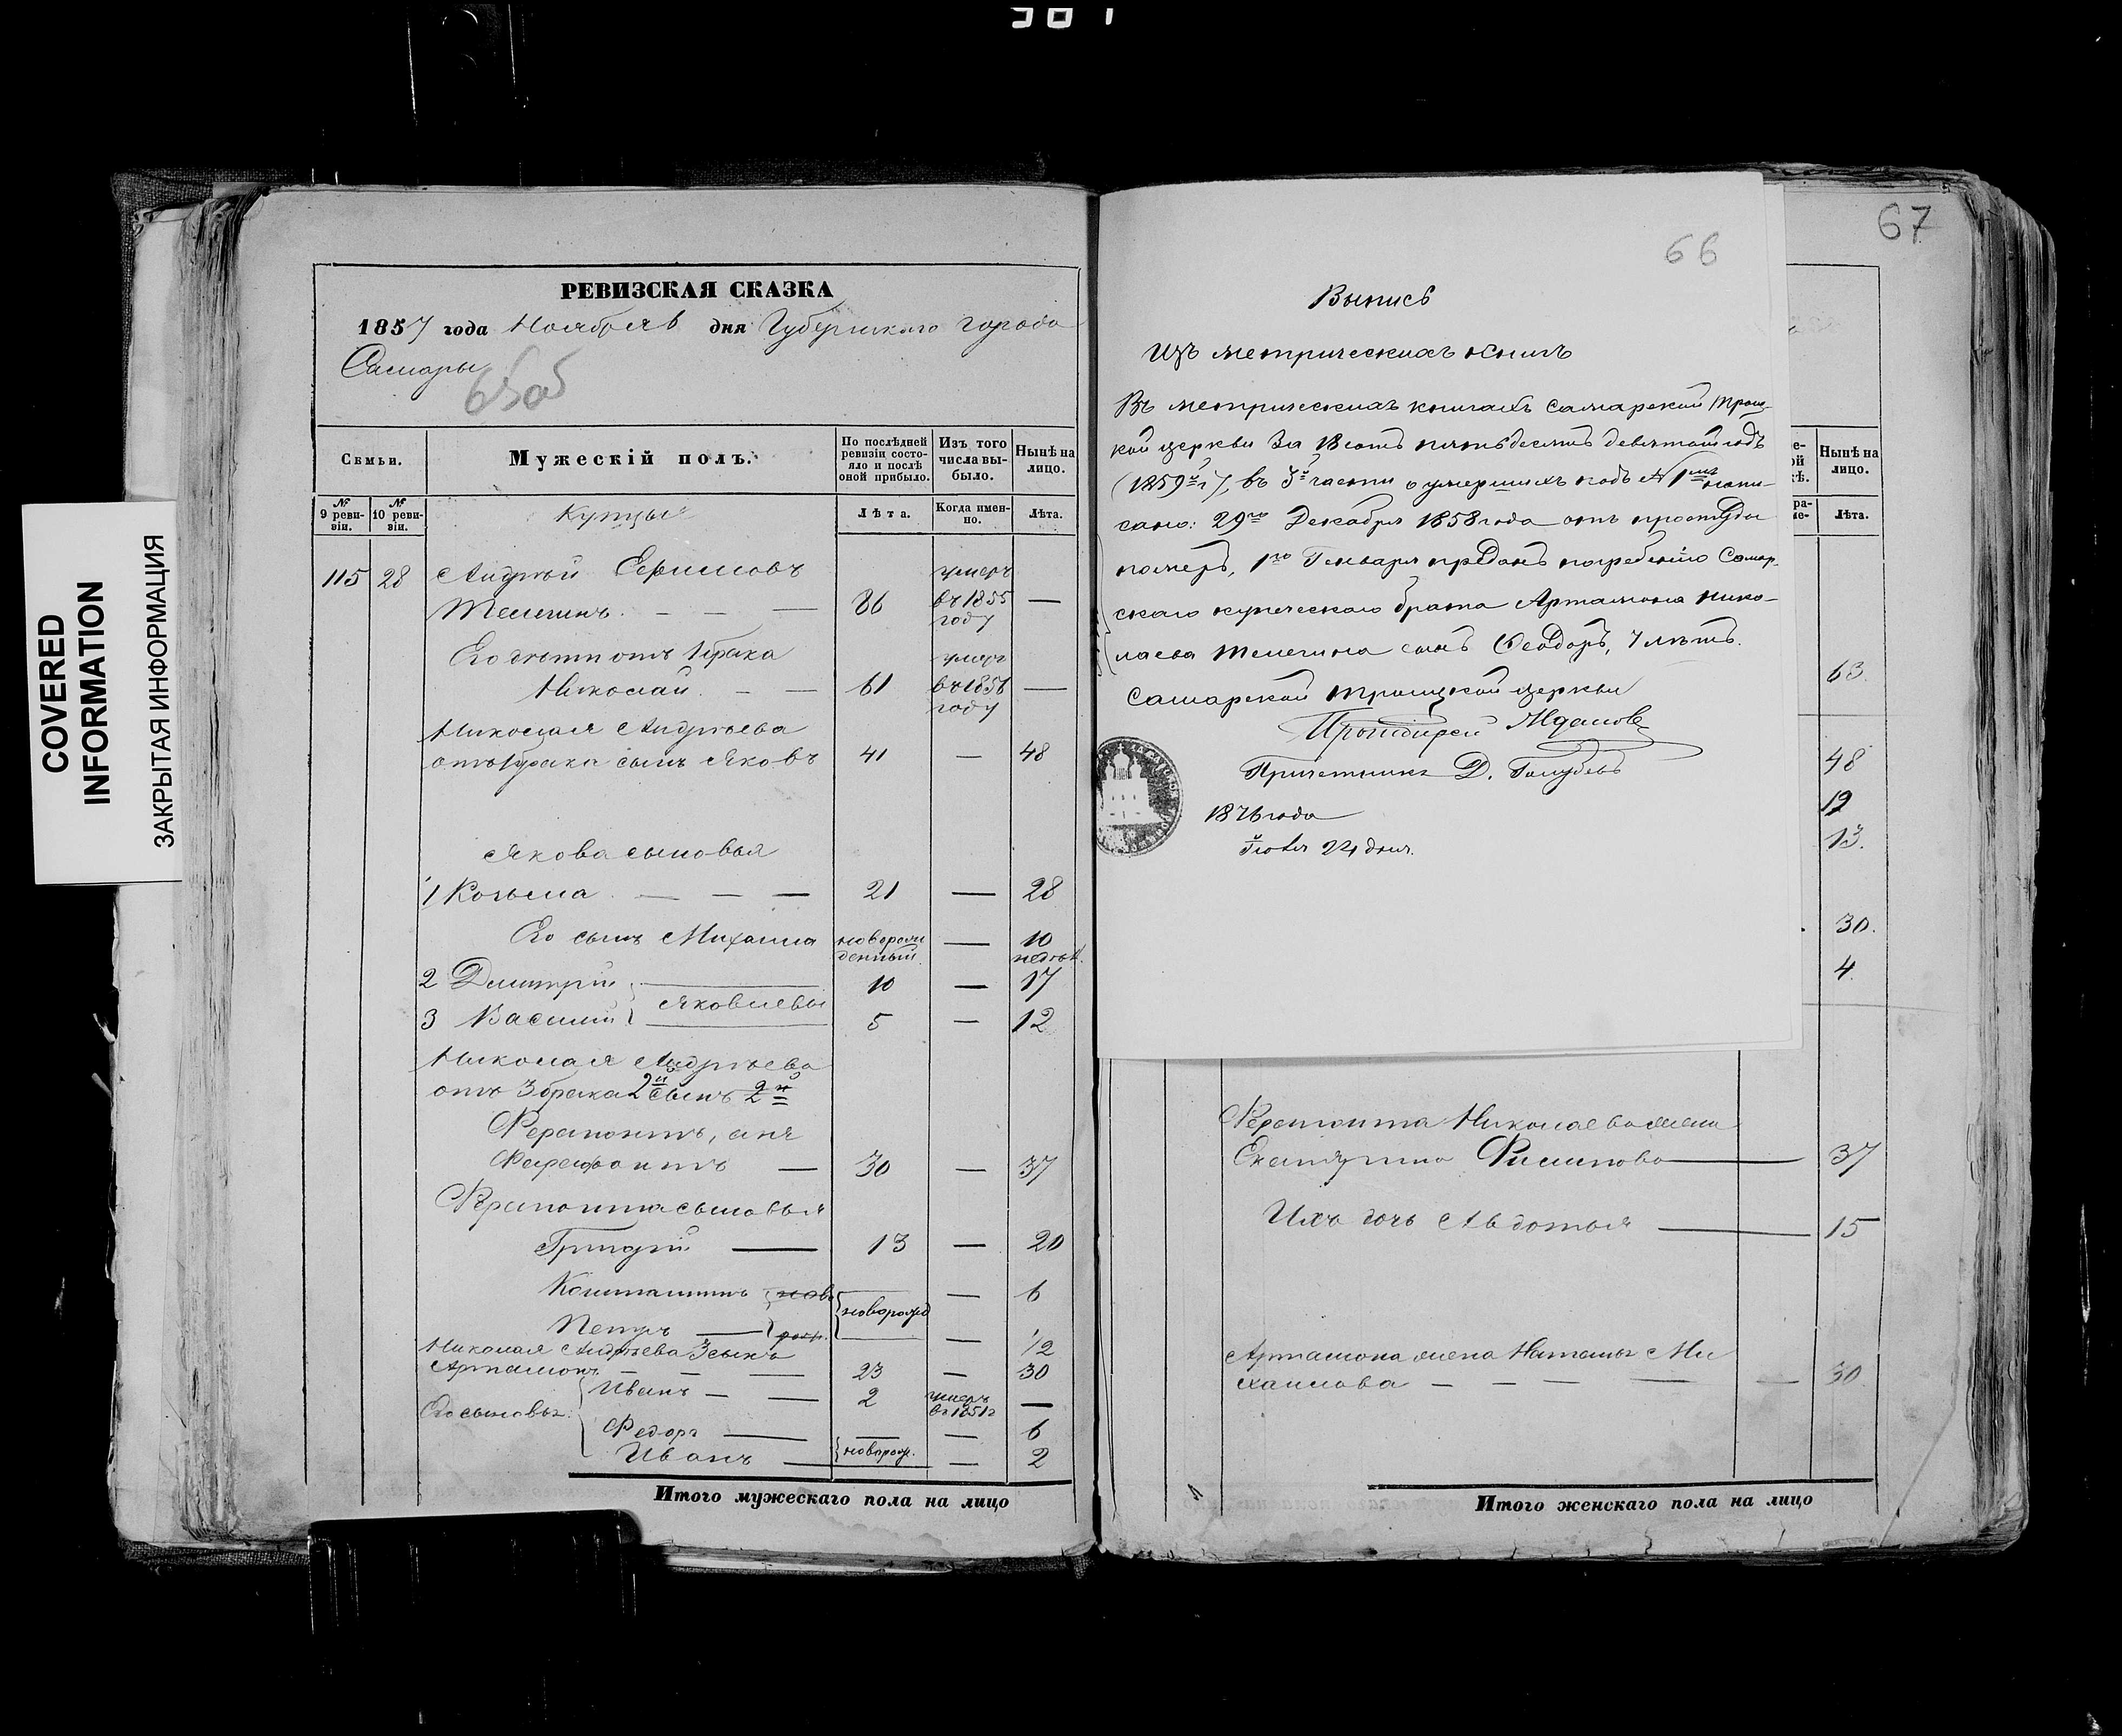 381
COVERED
INFORMATION
ЗАКРЫТАЯ ИНФОРМАЦИЯ
РЕВИЗСКАЯ СКАЗКА
1857 года Ноября 6 дня Губернскаго города
Самары
65об
Семьи.
Мужескiй полъ.
По послѣдней ревизiи состояло и послѣ оной прибыло.
Изъ того числа выбыло.
Нынѣ на лицо.
№ 9 ревизiи.
№ 10 ревизiи.
Купцы
Лѣта.
Когда именно.
Лѣта.
115 28 Андрей Ефимовъ умеръ
Телегинъ. — — — 86 въ 1855 году —
Его дѣти отъ 1 брака умеръ
Николай. — — 61 въ 1856 году —
Николая Андреева
отъ 1 брака сынъ Яковъ 41 — 48
Якова сыновья
1 Козьма — — — 21 — 28
Его сынъ Михаила новорожденный — 10 недѣл.
2 Дмитрiй 10 — 17
Яковлевы
3 Василiй 5 — 12
Николая Андреева
отъ 3 брака 2й сынъ 2й
Ферапонтъ, онъ
Ферафонтъ — 30 — 37
Ферапонта сыновья
Григорiй — 13 — 20
Константинъ ново новорожд — 6
Петръ — рожд. — 1/2
Николая Андреева 3 сынъ
Артамонъ — — — 23 — 30
Его сыновья Иванъ — — 2 умеръ въ 1851 г —
Федоръ — — — 6
Иванъ — новорож. — 2
Итого мужескаго пола на лицо
66
Выпись
изъ метрическихъ книгъ
Въ метрическихъ книгахъ Самарской Троиц-
кой церкви за 18 сотъ пятьдесятъ девятый годъ
(1859й г), въ 3й части о умершихъ подъ № 1мъ напи-
сано: 29го Декабря 1858 года отъ простуды
померъ, 1го Генваря преданъ погребенiю Самар-
скаго купеческаго брата Артамона Нико-
лаева Телегина сынъ Феодоръ, 7 лѣтъ.
Самарской Троицкой церкви
Протоiерей Ждановъ
Причетникъ Д. Голубевъ
1876 года
Iюля 24 дня.
67
Нынѣ на лицо.
Лѣта.
63.
48
19
13.
30.
4.
Ферапонта Николаева жена
Екатерина Филипова — 37
Ихъ дочь Авдотья — 15
Артамона жена Наталья Ми
хайлова — — — — — 30
Итого женскаго пола на лицо